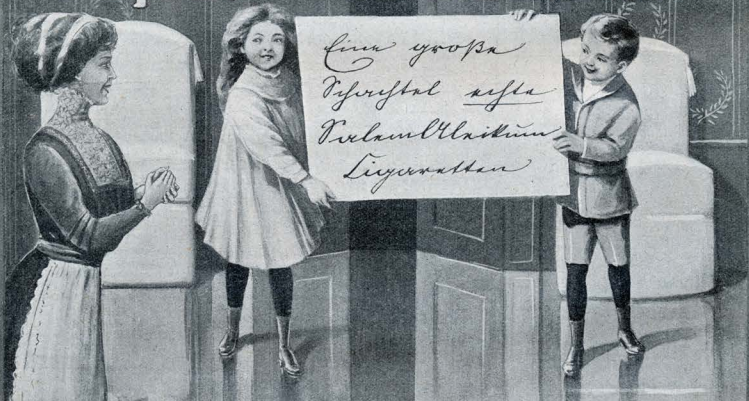 Eine große
Schachtel echte
Salem Aleikum
Cigaretten